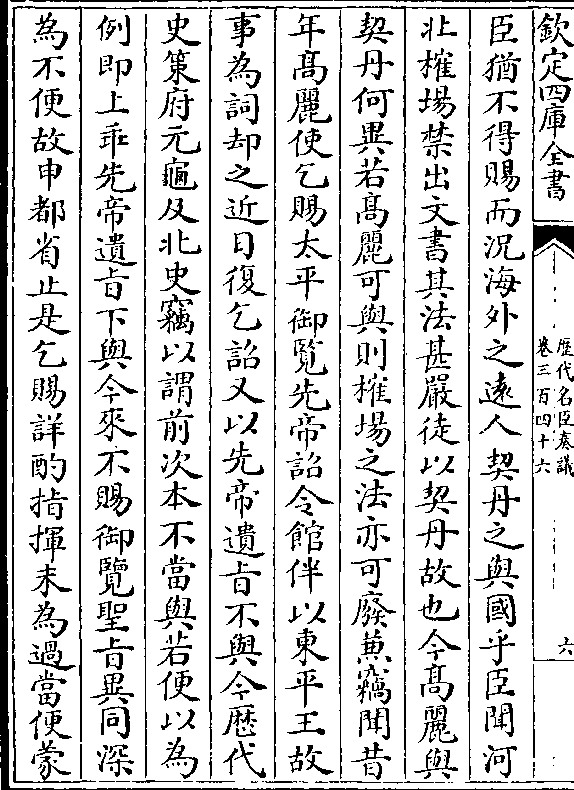 欽定四庫全書
歷代名臣奏議
卷三百四十六
六
臣猶不得賜而況海外之遠人契丹之與國乎臣聞河
北榷場禁出文書其法甚嚴徒以契丹故也今髙麗與
契丹何異若髙麗可與則榷場之法亦可廢兼竊聞昔
年髙麗使乞賜太平御覽先帝詔令館伴以東平王故
事為詞却之近日復乞詔又以先帝遺旨不與今歷代
史策府元龜及北史竊以謂前次本不當與若便以為
例即上乖先帝遺旨下與今來不賜御覽聖旨異同深
為不便故申都省止是乞賜詳酌指揮未為過當便蒙